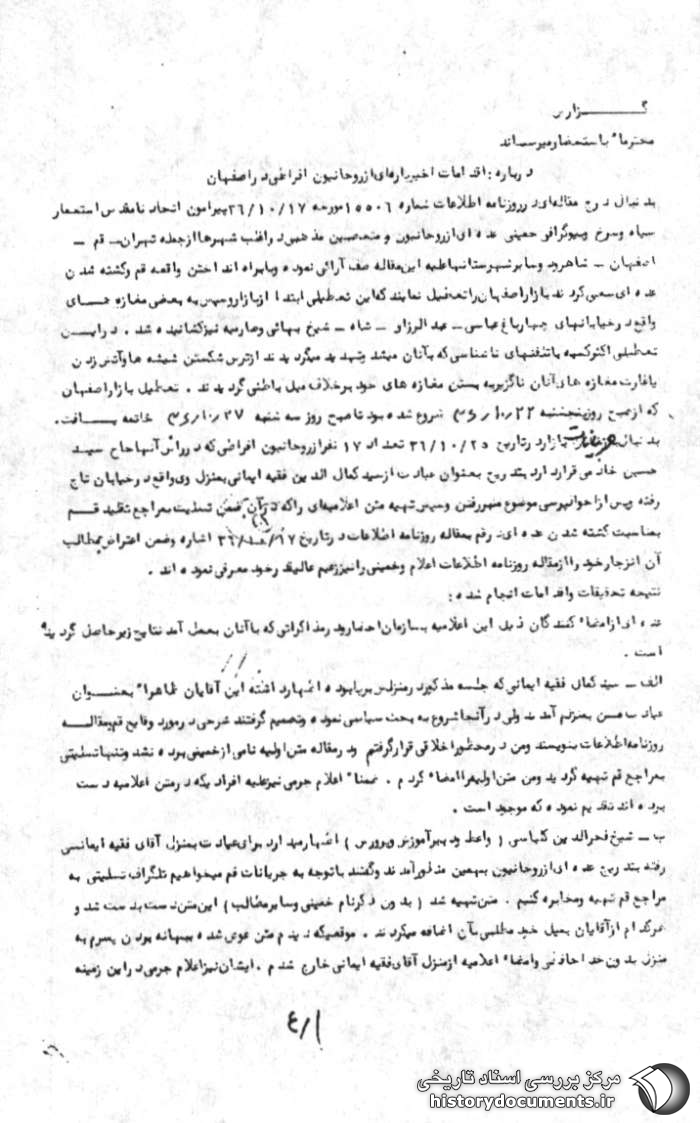 گـــــــزارش
محترما" باستحضار میرساند
درباره: اقدامات اخیر پاره‌ای از روحانیون افراطی در اصفهان
بدنبال درج مقاله‌ای در روزنامه اطلاعات شماره ۱۵۵۰۶ مورخه ۳۶/۱۰/۱۷ پیرامون اتحاد نامقدس استعمار
سیاه و سرخ و بیوگرافی خمینی عده‌ای از روحانیون و متعصبین مذهبی در اغلب شهرها از جمله تهران ـ قم ـ
اصفهان ـ شاهرود و سایر شهرستانها علیه این مقاله صف آرائی نموده و با براه انداختن واقعه قم و کشته شدن
عده‌ای سعی کردند بازار اصفهان را تعطیل نمایند که این تعطیلی ابتدا از بازار و سپس به بعضی مغازه هـــای
واقع در خیابانهای چهارباغ عباسی ـ عبدالرزاق ـ شاه ـ شیخ بهائی و صارمیه نیز کشانیده شد . در ایـــن
تعطیلی اکثر کسبه با تلفنهای ناشناسی که بآنان میشد و تهدید میگردیدند از ترس شکستن شیشه ها و آتش زدن
یا غارت مغازه های آنان ناگزیر به بستن مغازه های خود بر خلاف میل باطنی گردیدند . تعطیل بازار اصفهان
که از صبح روز پنجشنبه ۳۶/۱۰/۲۲ شروع شده بود تا صبح روز سه شنبه ۳۶/۱۰/۲۷ خاتمه یـــافت.
بدنبال جریانات بازار در تاریخ ۳۶/۱۰/۲۵ تعداد ۱۷ نفر از روحانیون افراطی که در رأس آنها حاج سیـد
حسین خادمی قرار دارد بتدریج بعنوان عیادت از سید کمال الدین فقیه ایمانی بمنزل وی واقع در خیابان تاج
رفته و پس از احوالپرسی موضوع منبر رفتن و سپس تهیه متن اعلامیه‌ای را که در آن ضمن تسلیت بمراجع تقلید قـــم
بمناسبت کشته شدن عده‌ای در قم بمقاله روزنامه اطلاعات در تاریخ ۳۶/۱۰/۱۷ اشاره و ضمن اعتراض بمطالب
آن انزجار خود را از مقاله روزنامه اطلاعات اعلام و خمینی را نیز زعیم عالیقدر خود معرفی نموده اند .
نتیجه تحقیقات و اقدامات انجام شده :
عده‌ای از امضاء کنندگان ذیل این اعلامیه بسازمان احضار و در مذاکراتی که با آنان بعمل آمد نتایج زیر حاصل گردیده
است .
الف ـ سید کمال فقیه ایمانی که جلسه مذکور در منزلش برپا بوده اظهار داشته این آقایان ظاهرا" بعنـــوان
عیادت من بمنزلم آمدند ولی در آنجا شروع به بحث سیاسی نموده و تصمیم گرفتند شرحی در مورد وقایع قم و مقالـــه
روزنامه اطلاعات بنویسند و من در محظور اخلاقی قرار گرفتم و در مقاله متن اولیه نامی از خمینی برده نشد و تنها تسلیتی
بمراجع قم تهیه گردید و من متن اولیه را امضاء کردم . ضمنا" اعلام جرمی نیز علیه افرادیکه در متن اعلامیه دست
برده اند تقدیم نموده که موجود است .
ب ـ شیخ فخرالدین کلباسی ( واعظ و دبیر آموزش و پرورش ) اظهار میدارد برای عیادت بمنزل آقای فقیه ایمانـی
رفته بتدریج عده‌ای از روحانیون بهمین منظور آمدند و گفتند با توجه به جریانات قم میخواهیم تلگراف تسلیتی به
مراجع قم تهیه و مخابره کنیم . متن تهیه شد ( بدون ذکر نام خمینی و سایر مطالب ) این متن دست بدست شد و
هر کدام از آقایان بمیل خود مطلبی بآن اضافه میکردند . موقعیکه دیدم متن عوض شده ببهانه بودن پسرم به
منزل بدون خداحافظی و امضاء اعلامیه از منزل آقای فقیه ایمانی خارج شدم . ایشان نیز اعلام جرمی در این زمینه
۴/۱
مرکز بررسی اسناد تاریخی
historydocuments.ir